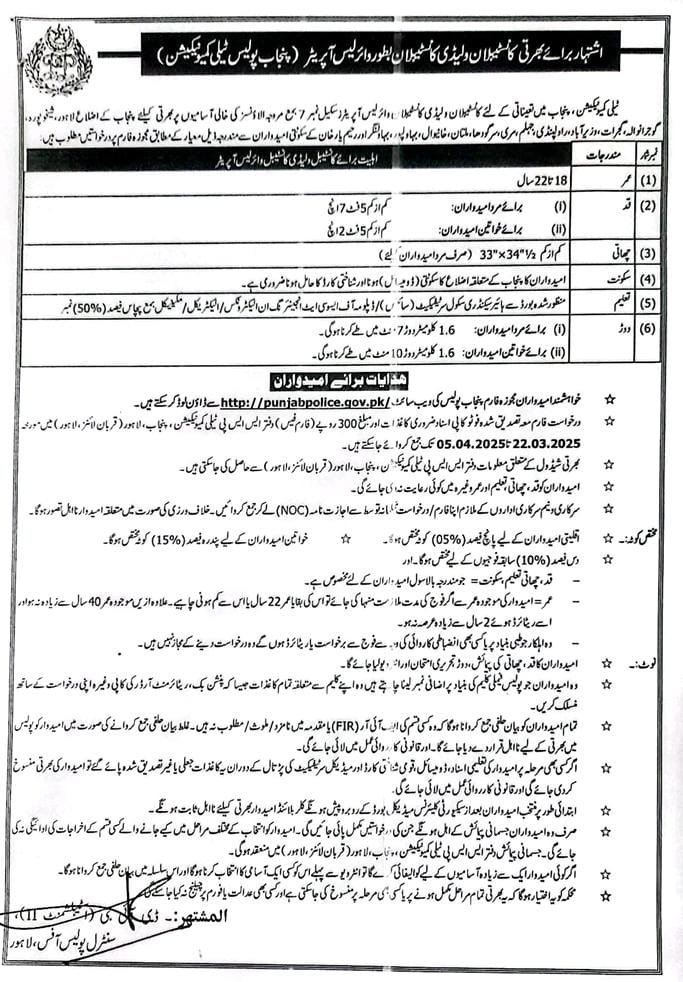 اشتہار برائے بھرتی کانسٹیبلان و لیڈی کانسٹیبلان بطور وائرلیس آپریٹر (پنجاب پولیس ٹیلی کمیونیکیشن)
ٹیلی کمیونیکیشن، پنجاب میں تعیناتی کے لئے کانسٹیبلان و لیڈی کانسٹیبلان وائرلیس آپریٹرز سکیل نمبر 7 بمع مروجہ الاؤنسز کی خالی آسامیوں پر بھرتی کیلئے پنجاب کے اضلاع لاہور، شیخوپورہ،
گوجرانوالہ، گجرات، وزیرآباد، راولپنڈی، جہلم، مری، سرگودھا، ملتان، خانیوال، بہاولپور، بہاولنگر اور رحیم یار خان کے سکونتی امیدواران سے مندرجہ ذیل معیار کے مطابق مجوزہ فارم پر درخواستیں مطلوب ہیں۔
نمبر شمار مندرجات اہلیت برائے کانسٹیبل و لیڈی کانسٹیبل وائرلیس آپریٹر
(1) عمر 18 تا 22 سال
(2) قد (i) برائے مرد امیدواران: کم از کم 5 فٹ 7 انچ
(ii) برائے خواتین امیدواران: کم از کم 5 فٹ 2 انچ
(3) چھاتی کم از کم 33"×34½" (صرف مرد امیدواران کیلئے)
(4) سکونت امیدواران کا پنجاب کے متعلقہ اضلاع کا سکونتی (ڈومیسائل) ہونا اور شناختی کارڈ کا حامل ہونا ضروری ہے۔
(5) تعلیم منظور شدہ بورڈ سے ہائیر سیکنڈری سکول سرٹیفکیٹ (سائنس) / ڈپلومہ آف ایسوسی ایٹ انجینئرنگ ان الیکٹرونکس / الیکٹریکل / مکینیکل بمع پچاس فیصد (50%) نمبر
(6) دوڑ (i) برائے مرد امیدواران: 1.6 کلومیٹر دوڑ 7 منٹ میں طے کرنا ہوگی۔
(ii) برائے خواتین امیدواران: 1.6 کلومیٹر دوڑ 10 منٹ میں طے کرنا ہوگی۔
ہدایات برائے امیدواران
☆ خواہشمند امیدواران مجوزہ فارم پنجاب پولیس کی ویب سائٹ http://punjabpolice.gov.pk/ سے ڈاؤن لوڈ کر سکتے ہیں۔
☆ درخواست فارم معہ تصدیق شدہ فوٹو کاپی اسناد ضروری کاغذات اور مبلغ 300 روپے (فارم فیس) دفتر ایس ایس پی ٹیلی کمیونیکیشن، پنجاب، لاہور (قربان لائنز، لاہور) میں مورخہ
22.03.2025 تا 05.04.2025 تک جمع کروائے جاسکتے ہیں۔
☆ بھرتی شیڈول کے متعلق معلومات دفتر ایس ایس پی ٹیلی کمیونیکیشن، پنجاب، لاہور (قربان لائنز، لاہور) سے حاصل کی جاسکتی ہیں۔
☆ امیدواران کو قد، چھاتی، تعلیم اور عمر وغیرہ میں کوئی رعایت نہ دی جائے گی۔
☆ سرکاری و نیم سرکاری اداروں کے ملازم اپنا فارم / درخواست محکمانہ توسط سے اجازت نامہ (NOC) لے کر جمع کروائیں۔ خلاف ورزی کی صورت میں متعلقہ امیدوار نااہل تصور ہوگا۔
مختص کوٹہ:۔ ☆ اقلیتی امیدواران کے لیے پانچ فیصد (05%) کوٹہ مختص ہوگا۔ ☆ خواتین امیدواران کے لیے پندرہ فیصد (15%) کوٹہ مختص ہوگا۔
☆ دس فیصد (10%) سابقہ فوجیوں کے لیے مختص ہوگا۔ اور
– قد، چھاتی، تعلیم، سکونت = جو مندرجہ بالا سول امیدواران کے لئے مختص ہے۔
– عمر = امیدوار کی موجودہ عمر سے اگر فوج کی مدت ملازمت منہا کی جائے تو اس کی بقایا عمر 22 سال یا اس سے کم ہونی چاہیے۔ علاوہ ازیں موجودہ عمر 40 سال سے زیادہ نہ ہو اور
اسے ریٹائرڈ ہوئے 2 سال سے زیادہ عرصہ نہ ہو۔
– وہ اہلکار جو طبی بنیاد پر یا کسی بھی انضباطی کاروائی کی وجہ سے فوج سے برخواست یا ریٹائرڈ ہوں گے وہ درخواست دینے کے مجاز نہیں ہیں۔
نوٹ:۔ ☆ امیدواران کا قد، چھاتی کی پیمائش، دوڑ، تحریری امتحان اور انٹرویو لیا جائے گا۔
☆ وہ امیدواران جو پولیس فیملی کلیم کی بنیاد پر اضافی نمبر لینا چاہتے ہیں وہ اپنے کلیم سے متعلقہ تمام کاغذات جیسا کہ پنشن بک، ریٹائرمنٹ آرڈر کی کاپی وغیرہ اپنی درخواست کے ساتھ
منسلک کریں۔
☆ تمام امیدواران کو بیان حلفی جمع کروانا ہوگا کہ وہ کسی قسم کی ایف آئی آر (FIR) یا مقدمہ میں نامزد / ملوث / مطلوب نہ ہیں۔ غلط بیان حلفی جمع کروانے کی صورت میں امیدوار کو پولیس
میں بھرتی کے لیے نااہل قرار دے دیا جائے گا۔ اور قانونی کاروائی عمل میں لائی جائے گی۔
☆ اگر کسی بھی مرحلہ پر امیدوار کی تعلیمی اسناد، ڈومیسائل، قومی شناختی کارڈ اور میڈیکل سرٹیفکیٹ کی پڑتال کے دوران یہ کاغذات جعلی یا غیر تصدیق شدہ پائے گئے تو امیدوار کی بھرتی منسوخ
کر دی جائے گی اور قانونی کاروائی عمل میں لائی جائے گی۔
☆ ابتدائی طور پر منتخب امیدواران بعد از سیکیورٹی کلیئرنس میڈیکل بورڈ کے روبرو پیش ہونگے کلر بلائنڈ امیدوار بھرتی کیلئے نااہل ثابت ہونگے۔
☆ صرف وہ امیدواران جسمانی پیمائش کے اہل ہونگے جن کی درخواستیں مکمل پائی جائیں گی۔ امیدوار کو انتخاب کے مختلف مراحل میں کیے جانے والے کسی قسم کے اخراجات کی ادائیگی نہ کی
جائے گی۔ جسمانی پیمائش دفتر ایس ایس پی ٹیلی کمیونیکیشن، پنجاب، لاہور (قربان لائنز، لاہور) میں منعقد ہوگی۔
☆ اگر کوئی امیدوار ایک سے زیادہ آسامیوں کے لیے کوالیفائی کرے گا تو انٹرویو سے پہلے اس کو کسی ایک آسامی کا انتخاب کرنا ہوگا اور اس سلسلہ میں بیان حلفی جمع کروانا ہوگا۔
☆ محکمہ کو یہ اختیار ہوگا کہ یہ بھرتی تمام مراحل مکمل ہونے پر یا کسی بھی مرحلہ پر منسوخ کی جاسکتی ہے اور کسی بھی عدالت یا فورم پر چیلنج نہ کیا جا سکے گا۔
المشتہر:۔ ڈی آئی جی (اسٹیبلشمنٹ II)،
سنٹرل پولیس آفس، لاہور